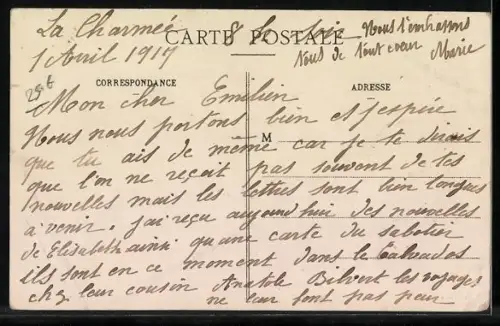 La Charmée 8 h soir Nous t'embrassons
1 Avril 1917 CARTE POSTALE tous de tout coeur Marie
CORRESPONDANCE ADRESSE
Mon cher Emilien
Nous nous portons bien et j'espère
M
que tu ais de même car je te dirais
que l'on ne reçoit pas souvent de tes
nouvelles mais les lettres sont bien longues
à venir. j'ai reçu aujourd'hui des nouvelles
de Elisabeth ainsi qu'une carte du sabotier
ils sont en ce moment dans le Calvados
chez leur cousin Anatole Bilvert les voyages
ne leur font pas peur